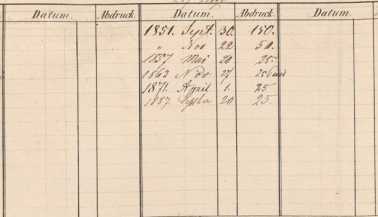 Datum. Abdruck. Datum. Abdruck. Datum.
1851. Sept. 30. 150.
" Nov 22. 50.
1857 Mai 20 25
1863 Nov 27 25
1871. April 1. 25
1887. 20 25.